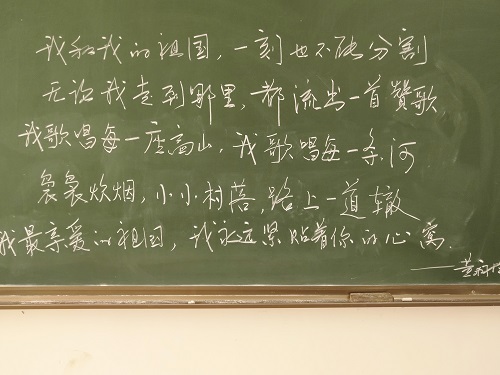 我和我的祖国，一刻也不能分割
无论我走到哪里，都流出一首赞歌
我歌唱每一座高山，我歌唱每一条河
袅袅炊烟，小小村落，路上一道辙
我最亲爱的祖国，我永远紧贴着你的心窝.